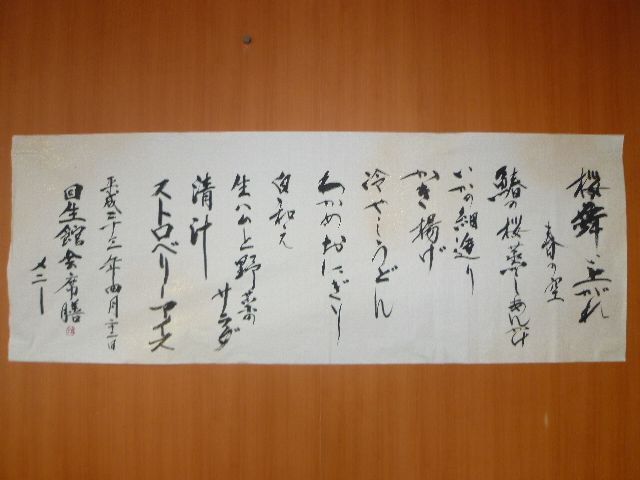 桜舞い上がれ
春の空
鰆の桜蒸しあんかけ
いかの細造り
かき揚げ
冷やしうどん
わかめおにぎり
白和え
生ハムと野菜の
サラダ
清汁
ストロベリーアイス
平成二十三年四月二十二日
回生館会席膳
メニー